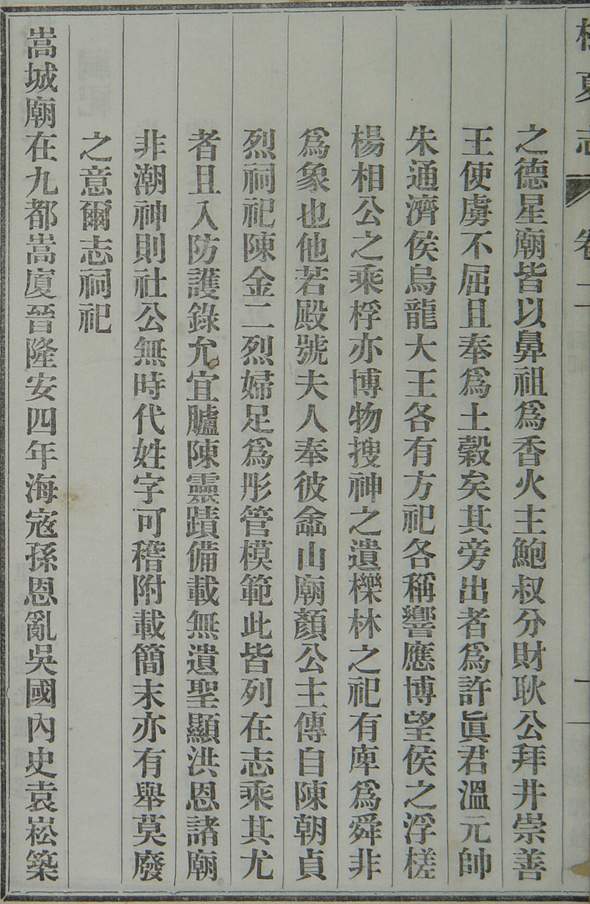 志
卷二
一
之德星廟皆以鼻祖爲香火主鮑叔分財耿公拜井崇善
王使虜不屈且奉爲土穀矣其旁出者爲許眞君溫元帥
朱通濟侯烏龍大王各有方祀各稱響應博望侯之浮槎
楊相公之乘桴亦博物搜神之遺櫟林之祀有庳爲舜非
爲象也他若殿號夫人奉彼嵞山廟顏公主傳自陳朝貞
烈祠祀陳金二烈婦足爲彤管模範此皆列在志乘其尤
者且入防護錄允宜臚陳靈蹟備載無遺聖顯洪恩諸廟
非潮神則社公無時代姓字可稽附載簡末亦有舉莫廢
之意爾志祠祀
嵩城廟在九都嵩廈晉隆安四年海寇孫恩亂吳國內史袁崧築